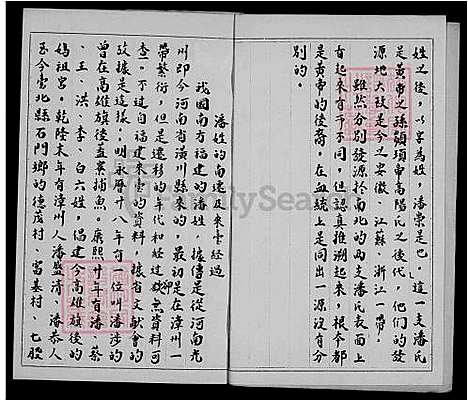 姓之後，以字為姓，潘崇是也。這一支潘氏
是黃帝之孫顓頊帝高陽氏之後代，他們的發
源地大致是今之安徽、江蘇、浙江一帶。
雖然分別發源於南北的兩支潘氏表面上
看起來有所不同，但認真推溯起來，根本都
是黃帝的後裔，在血統上是同出一源沒有分
別的。
潘姓的南遷及來臺經過
我國南方福建的潘姓，據傳是從河南光
州即今河南省潢川縣來的，最初是在漳州一
帶繁衍，但是遷移的年代和經過，卻無資料可
查。不過自福建來臺的資料，據省文獻會的
考據是這樣：明永曆廿八年有一位叫潘涉的
曾在高雄旗後蓋寮捕魚。康熙廿年有潘、蔡
、王、洪、李、白六姓，倡建今高雄旗後的
媽祖宮，乾隆末年有漳州人潘盛清、潘恭人
至今臺北縣石門鄉的德茂村、富基村、七股
FamilySearch